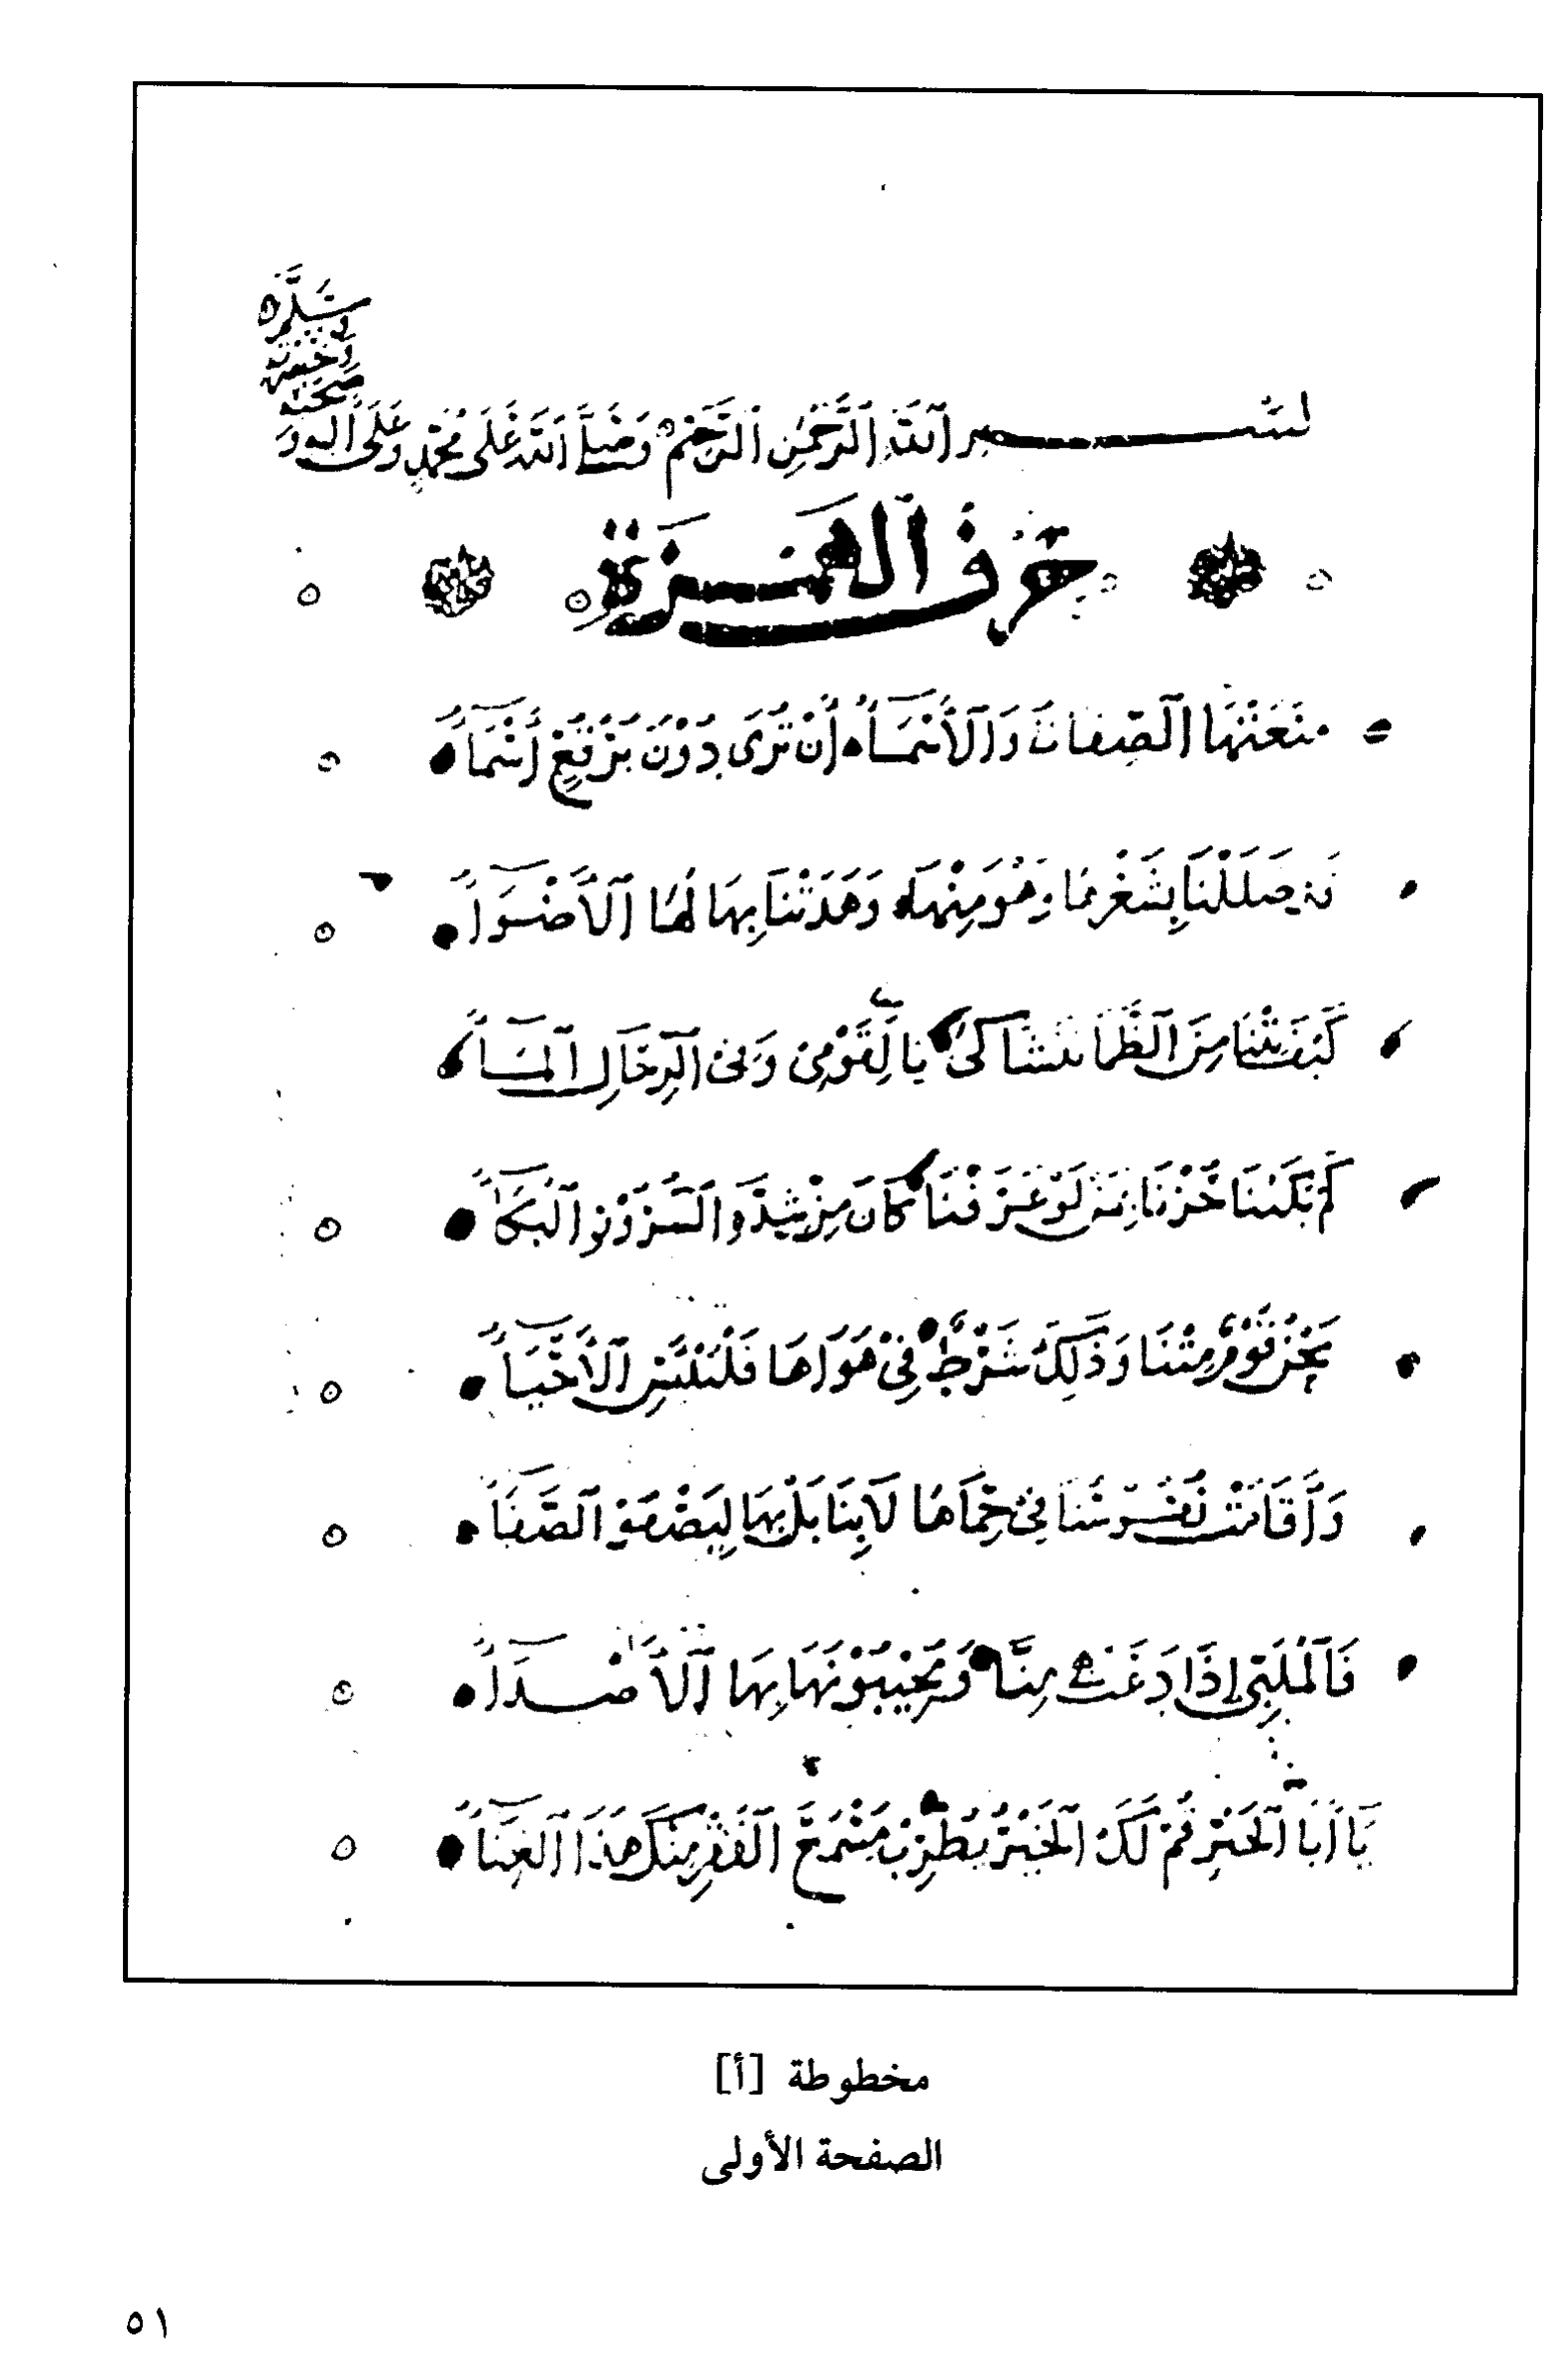 بسم الله الرحمن الرحيم وصلى الله على محمد وعلى اله و
حرف الهمزة
منعتها الصفات والأسماء أن ترى دون برقع أسماء
قد ضللنا بشعرها وهو منها وهدتنا بها لها الأضواء
كيف بتنا من الظما نتشاكى يا لقومي وفي الرحال الماء
كم بكينا حزنا بمن لو عرفنا كان من شدة السرور البكاء
نحن قوم متنا وذلك شرط في هواها فلييئس الأحياء
وأقامت نفوسنا في حماها لا بنا بل بها ليصفو الصفاء
فالملبي إذا دعت منا ويجيبونها بها الأصداء
يا أبا الخير قم لك الخير يطرب مسمع الفقر منك هذا الغناء
مخطوطة [أ]
الصفحة الأولى
٥١